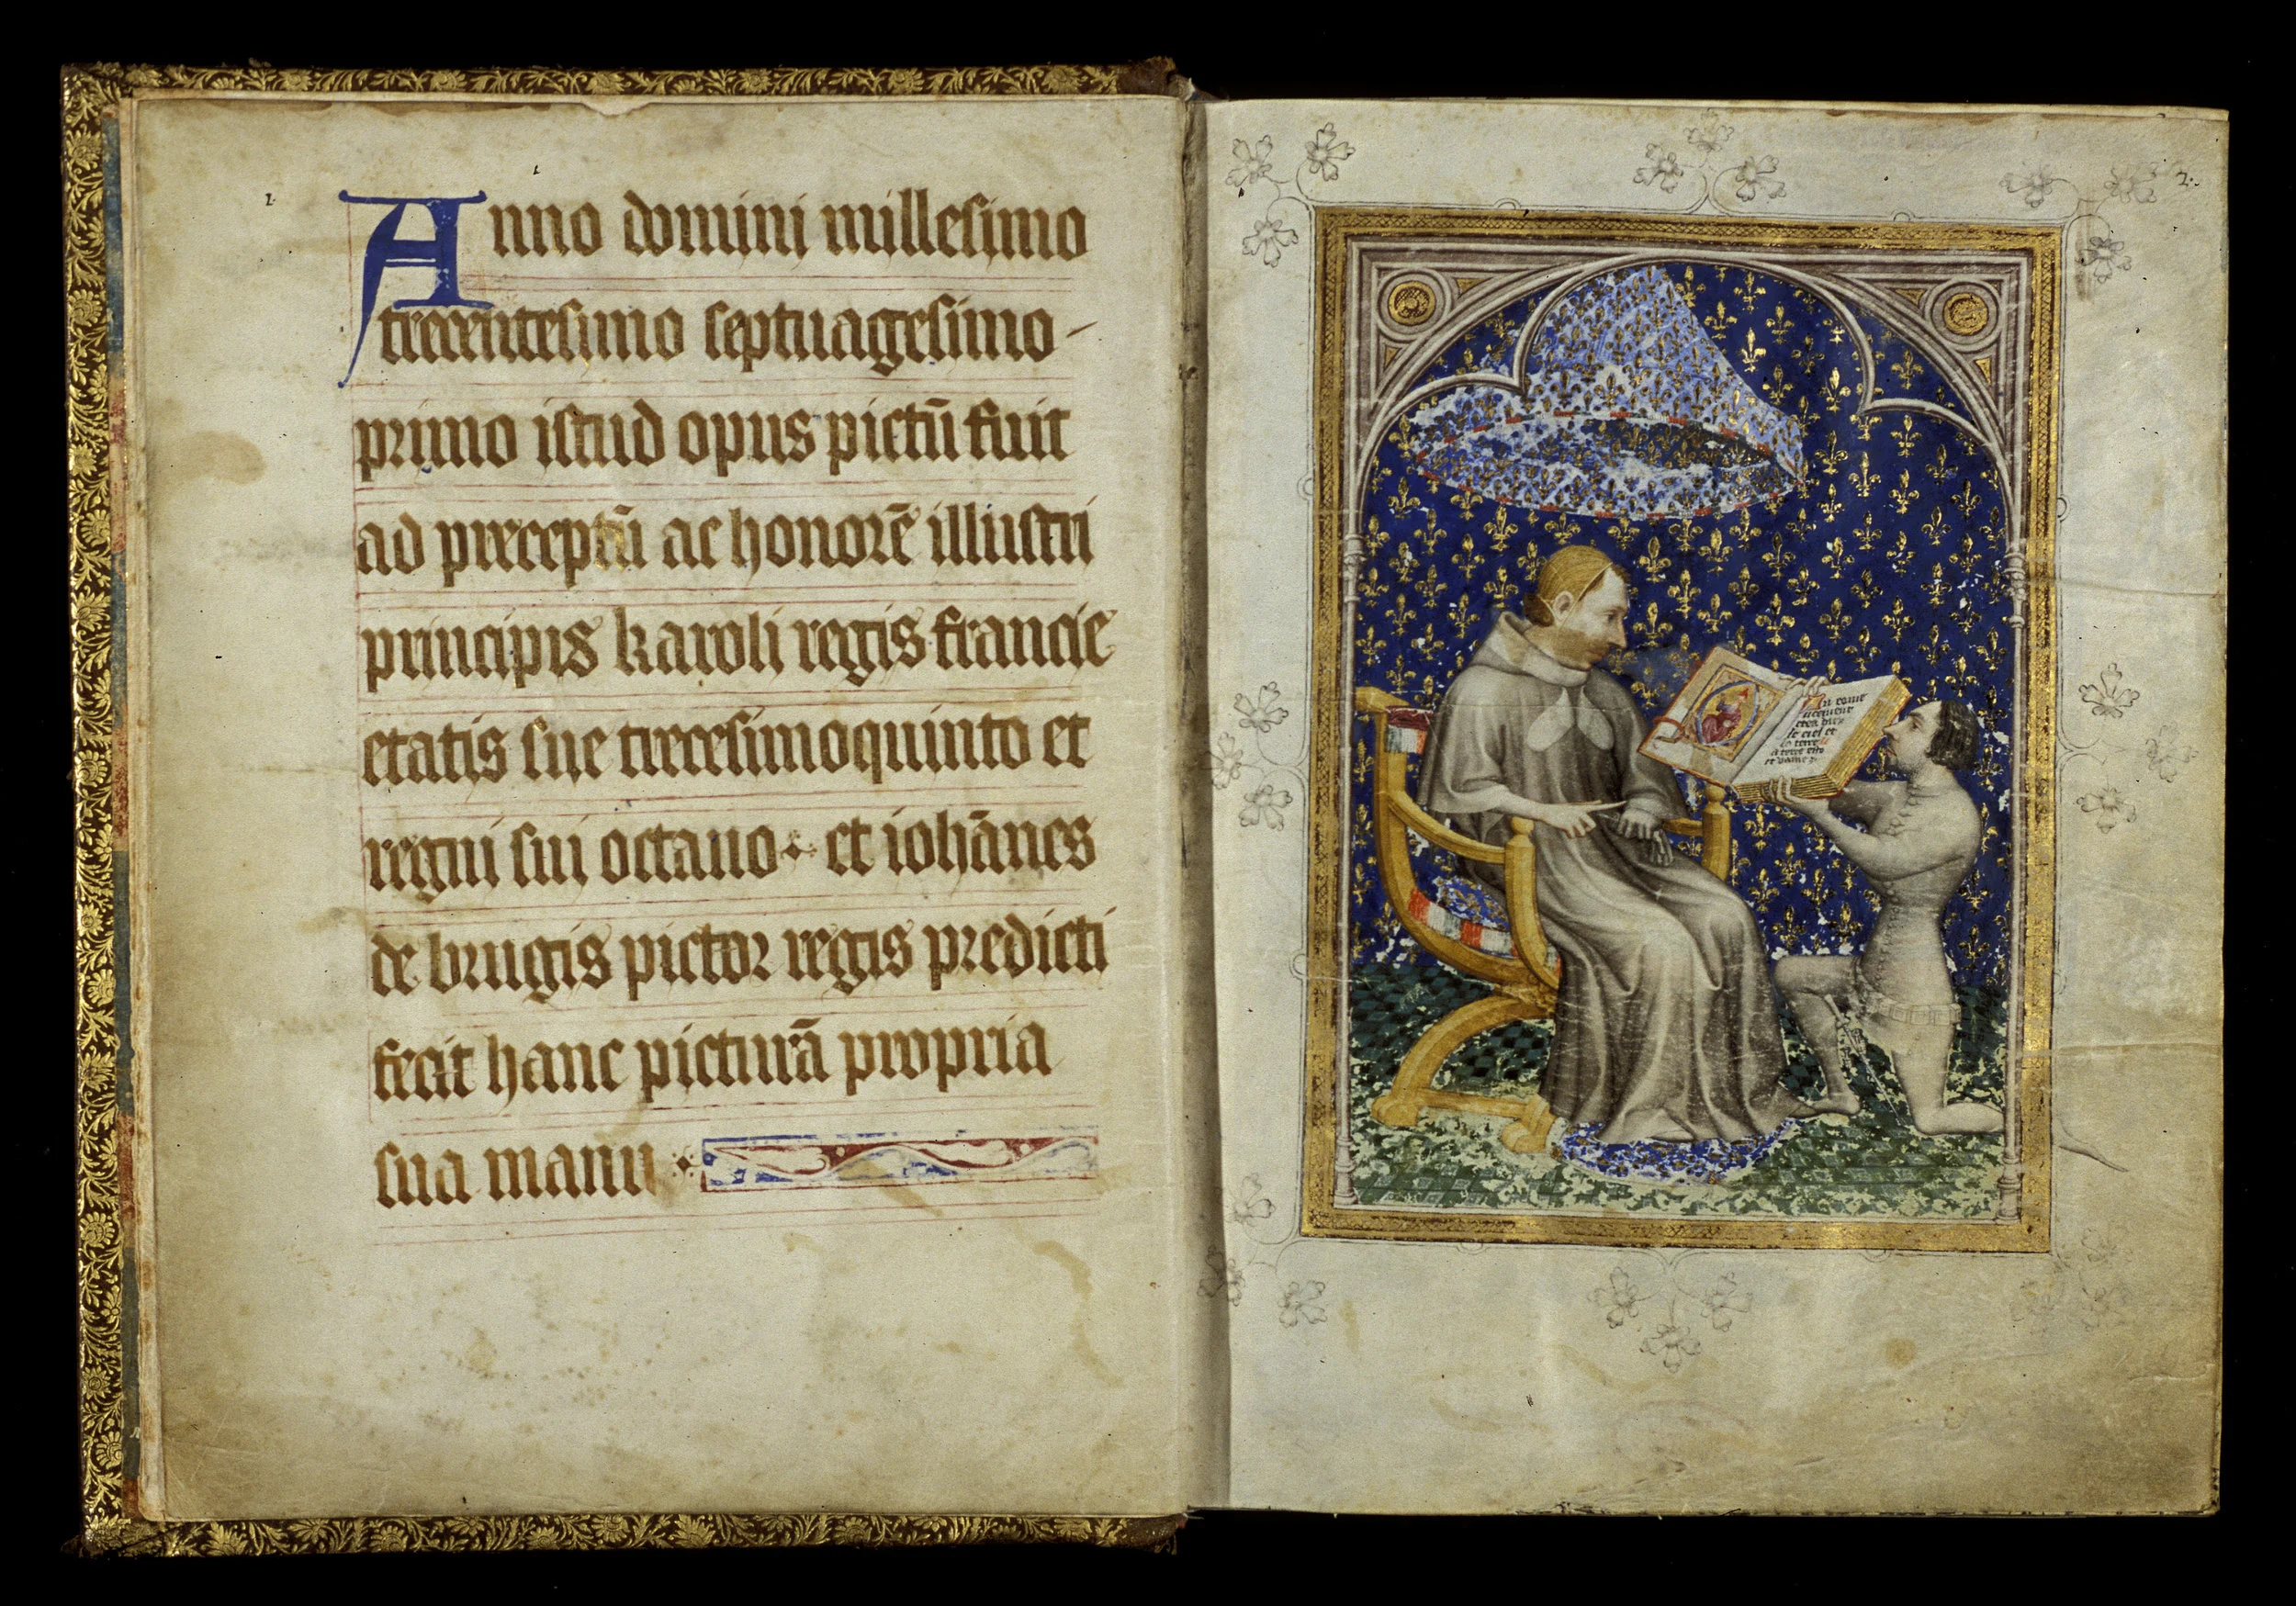 1
Anno domini millesimo
trecentesimo septuagesimo-
primo istud opus pictū fuit
ad preceptū ac honorē illustri
principis karoli regis francie
etatis sue trecesimoquinto et
regni sui octauo. et iohānes
de brugis pictor regis predicti
fecit hanc picturā propria
sua manu.
2.
le ciel et